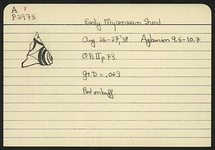 A
P 2975
Early Mycenaean Sherd
Aug. 26-27, '38. Aglaurion 9.5-10.7
O.E. II p. 73.
gr. D = .063
Red on buff